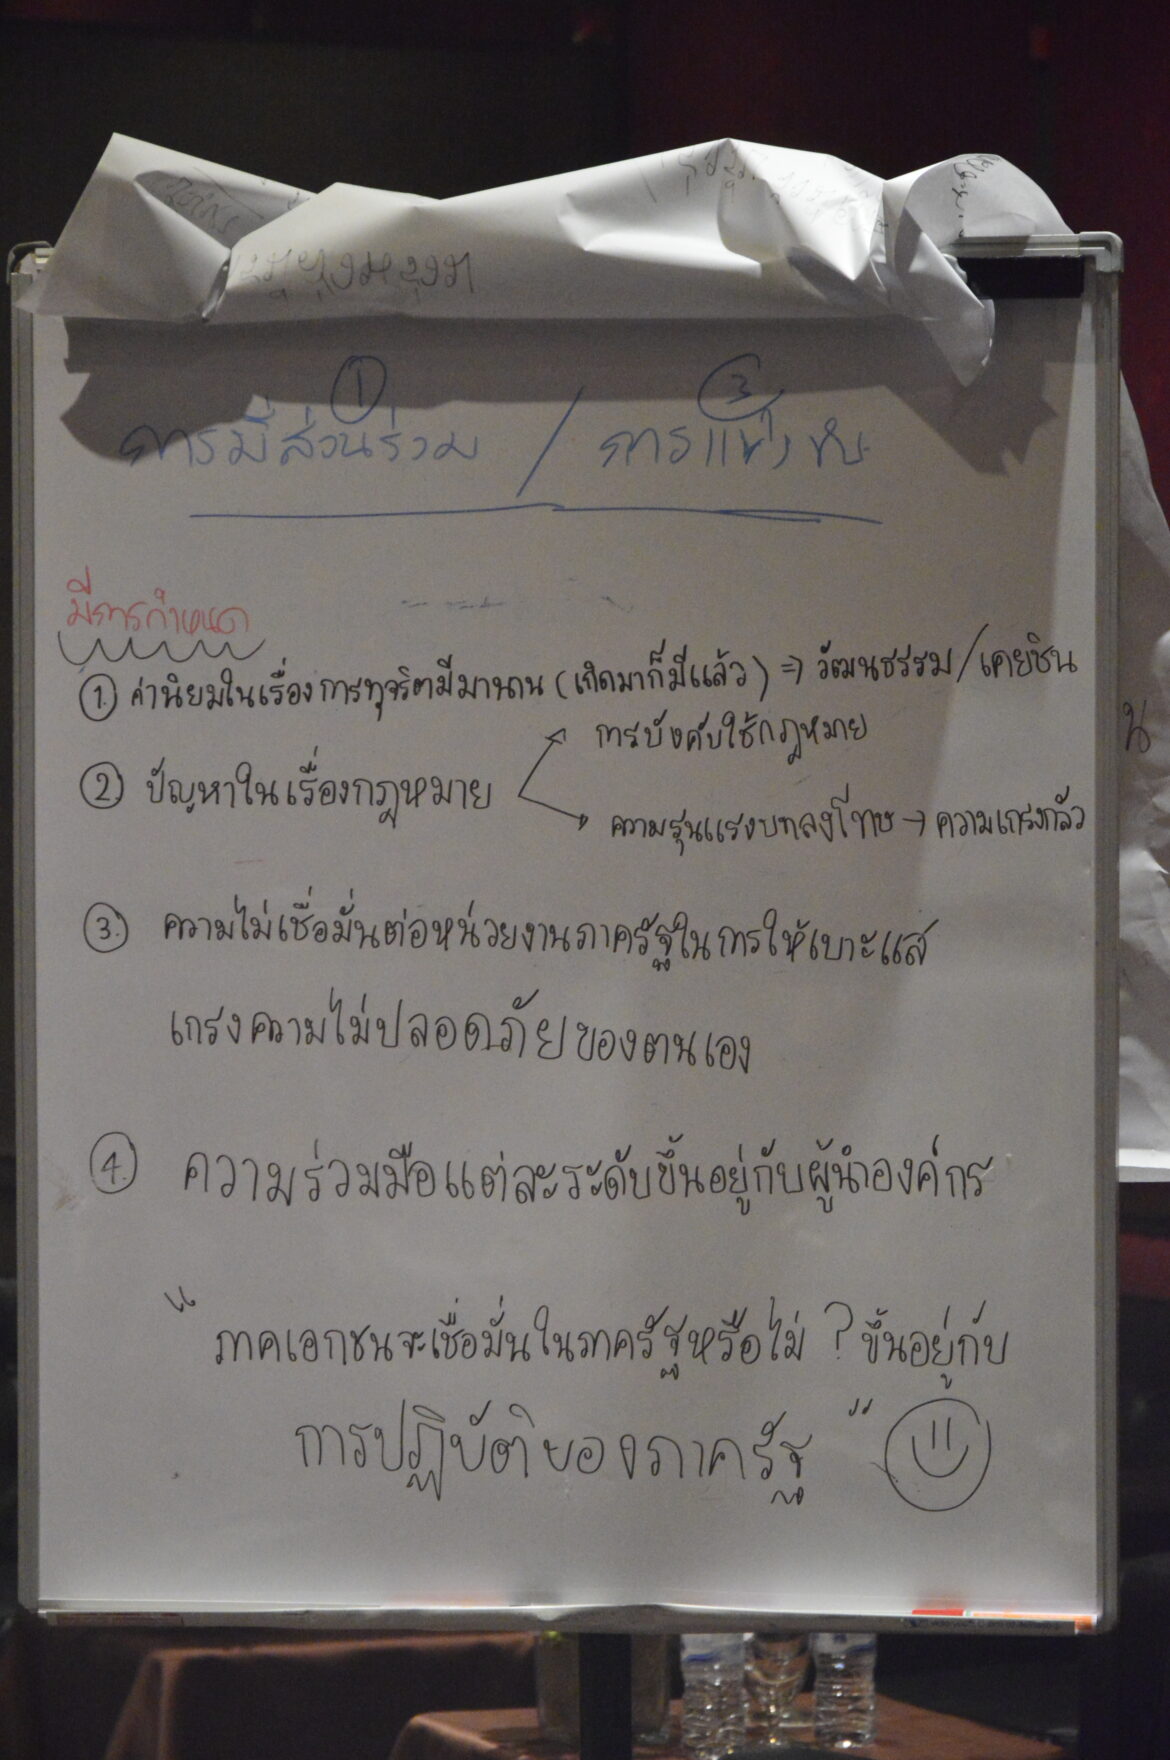 ① ③
การมีส่วนร่วม / การแข่งขัน
มีการกำหนด
① ค่านิยมในเรื่องการทุจริตมีมานาน (เกิดมาก็มีแล้ว) ⇒ วัฒนธรรม/เคยชิน
การบังคับใช้กฎหมาย
② ปัญหาในเรื่องกฎหมาย
ความรุนแรงบทลงโทษ → ความเกรงกลัว
③ ความไม่เชื่อมั่นต่อหน่วยงานภาครัฐในการให้เบาะแส
เกรงความไม่ปลอดภัยของตนเอง
④ ความร่วมมือแต่ละระดับขึ้นอยู่กับผู้นำองค์กร
"ภาคเอกชนจะเชื่อมั่นในภาครัฐหรือไม่ ? ขึ้นอยู่กับ
การปฏิบัติของภาครัฐ"
น